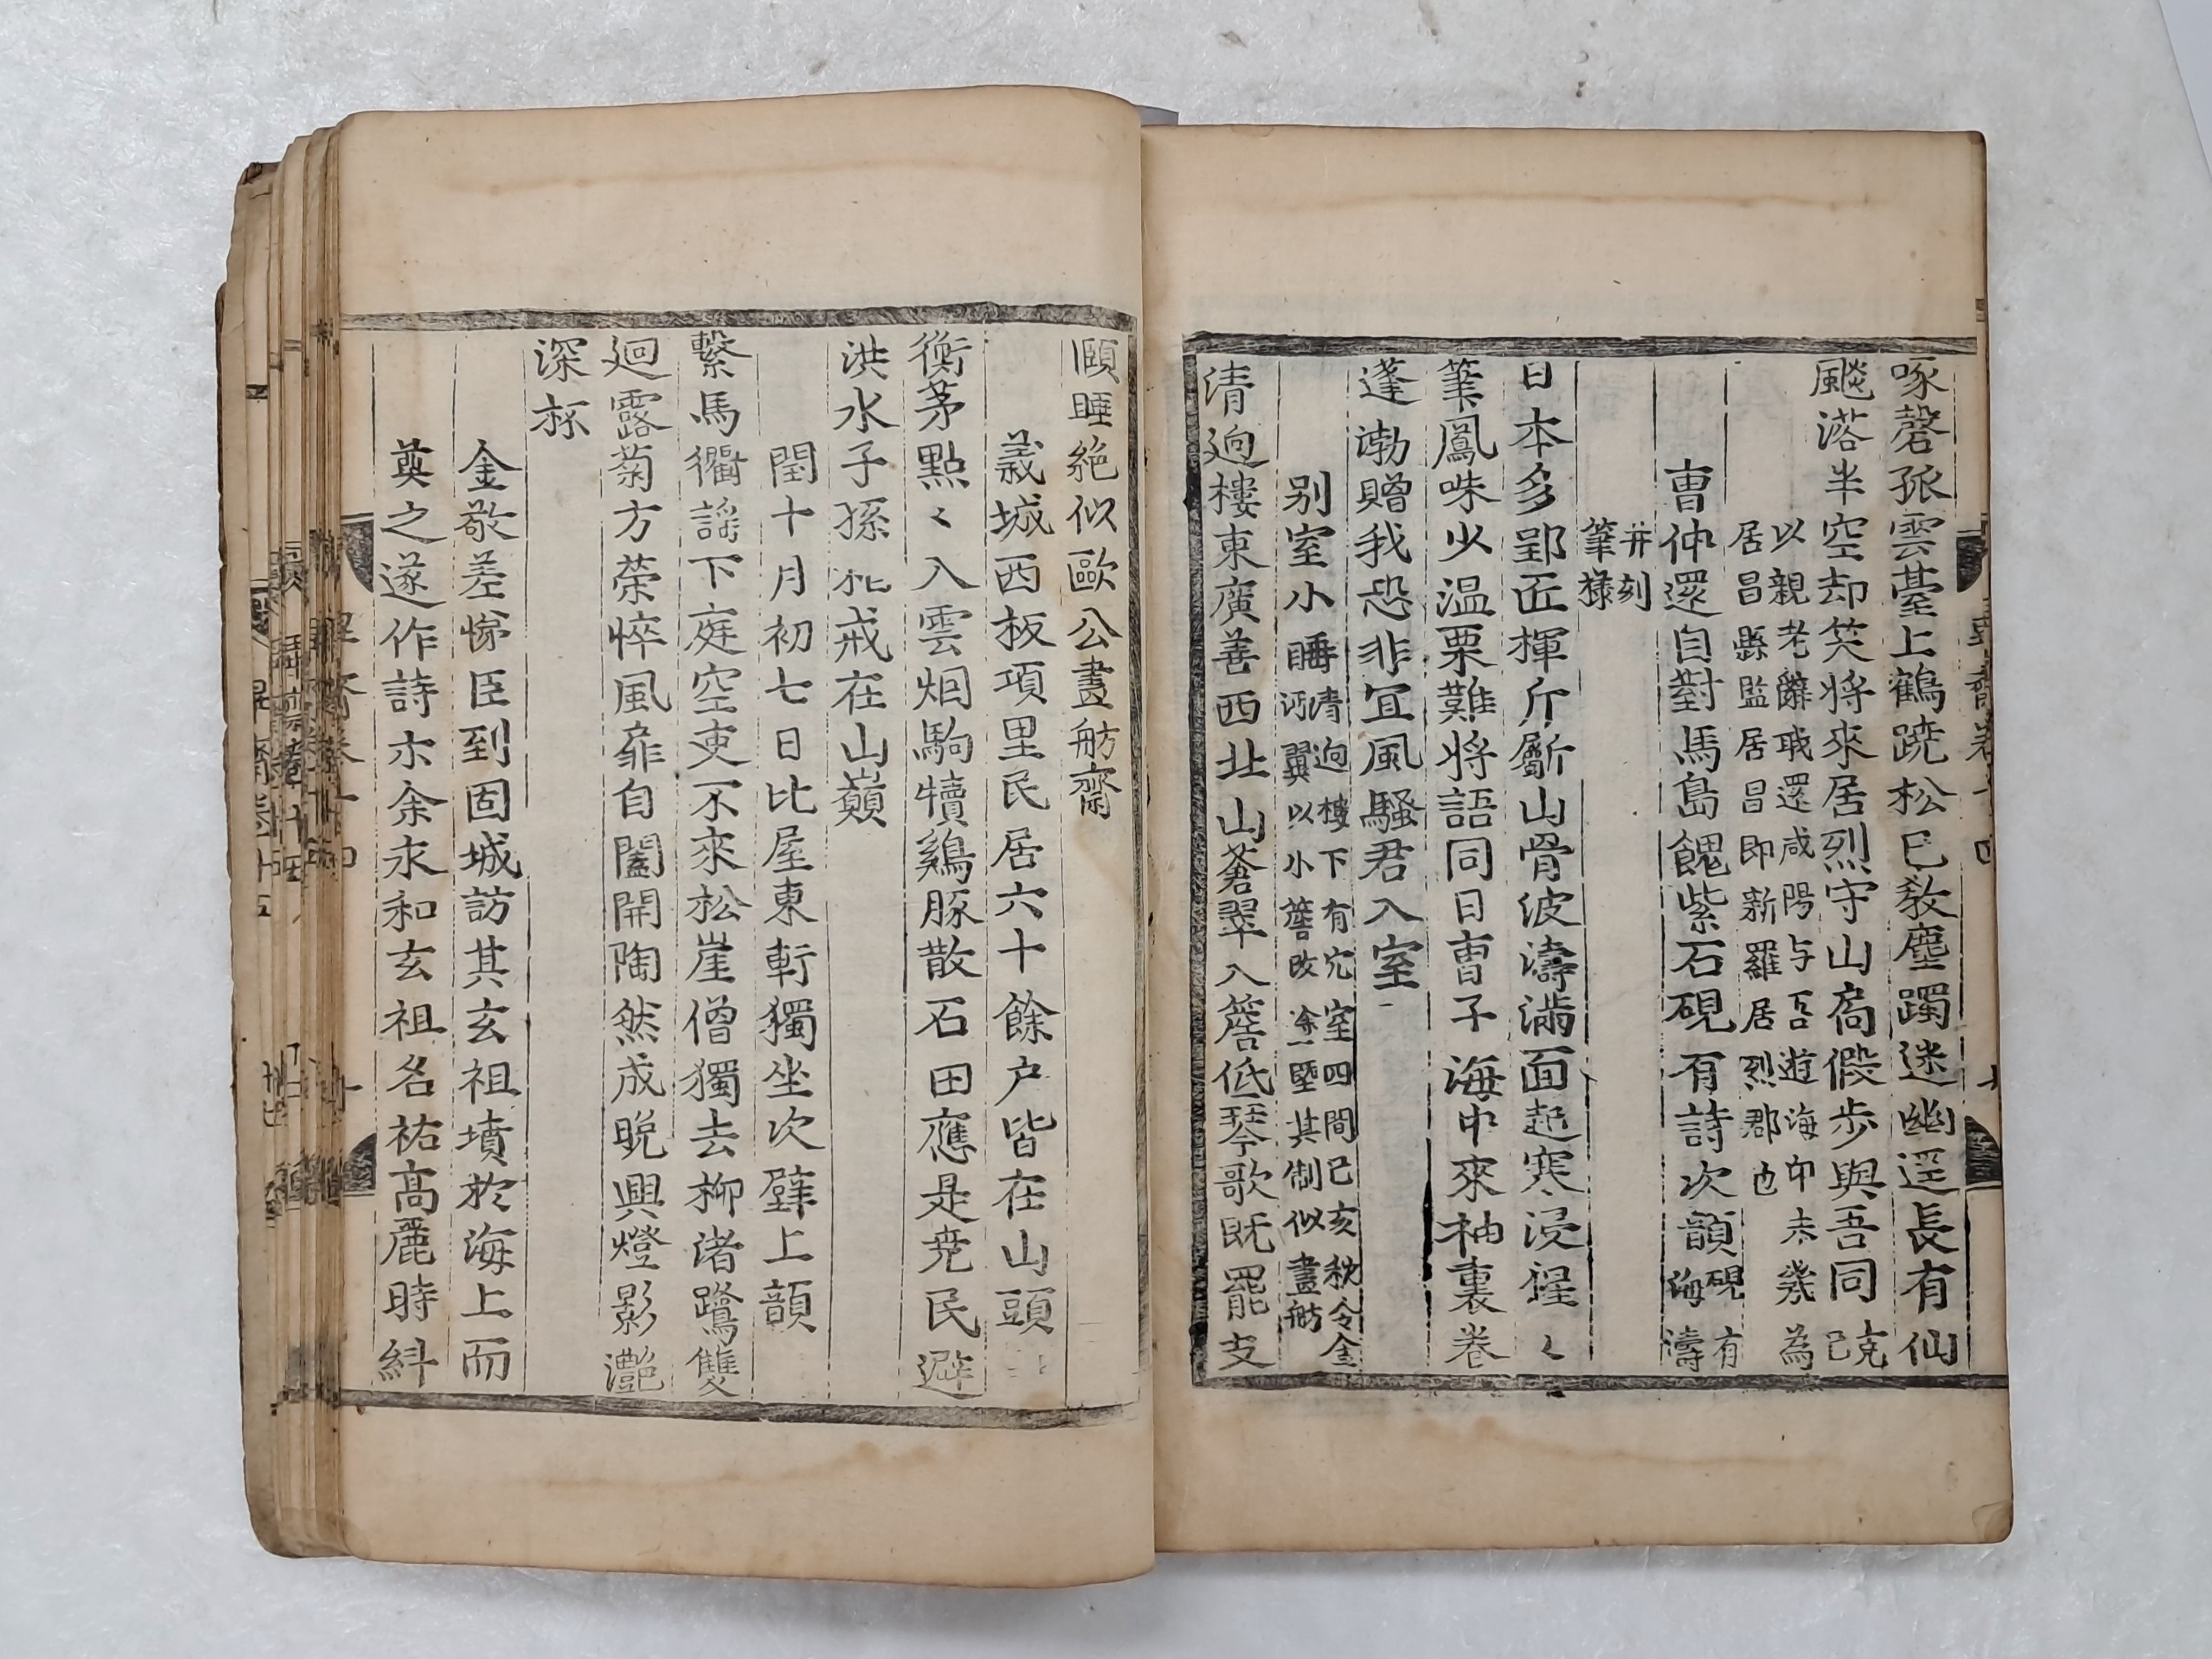 啄磬孤雲臺上鶴蹺松已教塵躅迷幽逕長有仙
飈落半空却笑將來居烈守山扃假步與吾同克己
以親老辭職還咸陽与吾遊海印未幾為
居昌縣監居昌即新羅居烈郡也
曺仲還自對馬島餽紫石硯有詩次韻硯有海濤
并刻
筆祿
日本多郢匠揮斤斸山骨波濤滿面起寒浸
筆鳳味少温栗難將語同日曺子海中來袖裏卷
蓬渤贈我恐非宜風騷君入室
别室小睡清逈樓下有宂室四間己亥秋令金
翼以小簷改塗墍其制似畫舫
清逈樓東廣善西北山蒼翠入簷低琴歌旣罷支
頤睡絕似歐公畫舫齋
義城西板項里民居六十餘户皆在山頭
衡茅點〻入雲烟駒犢鷄豚散石田應是尭民避
洪水子孫化戒在山巔
閏十月初七日比屋東軒獨坐次壁上韻
繫馬衢謡下庭空吏不來松崖僧獨去柳渚鷺雙
迴露菊方榮悴風扉自闔開陶然成晚興燈影灧
深杯
金敬差悌臣到固城訪其玄祖墳於海上而
奠之遂作詩示余求和玄祖名祐髙麗時糾